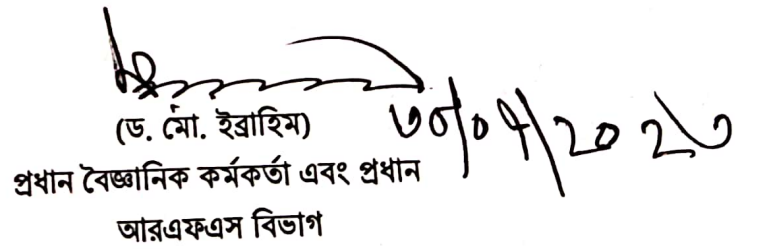 (ড. মো. ইব্রাহিম) ৩০/০৭/২০২৩
প্রধান বৈজ্ঞানিক কর্মকর্তা এবং প্রধান
আরএফএস বিভাগ